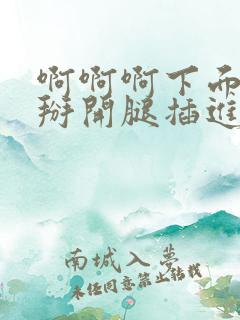 啊啊啊下面
掰開腿插進
南城入夢
未经同意禁止转载